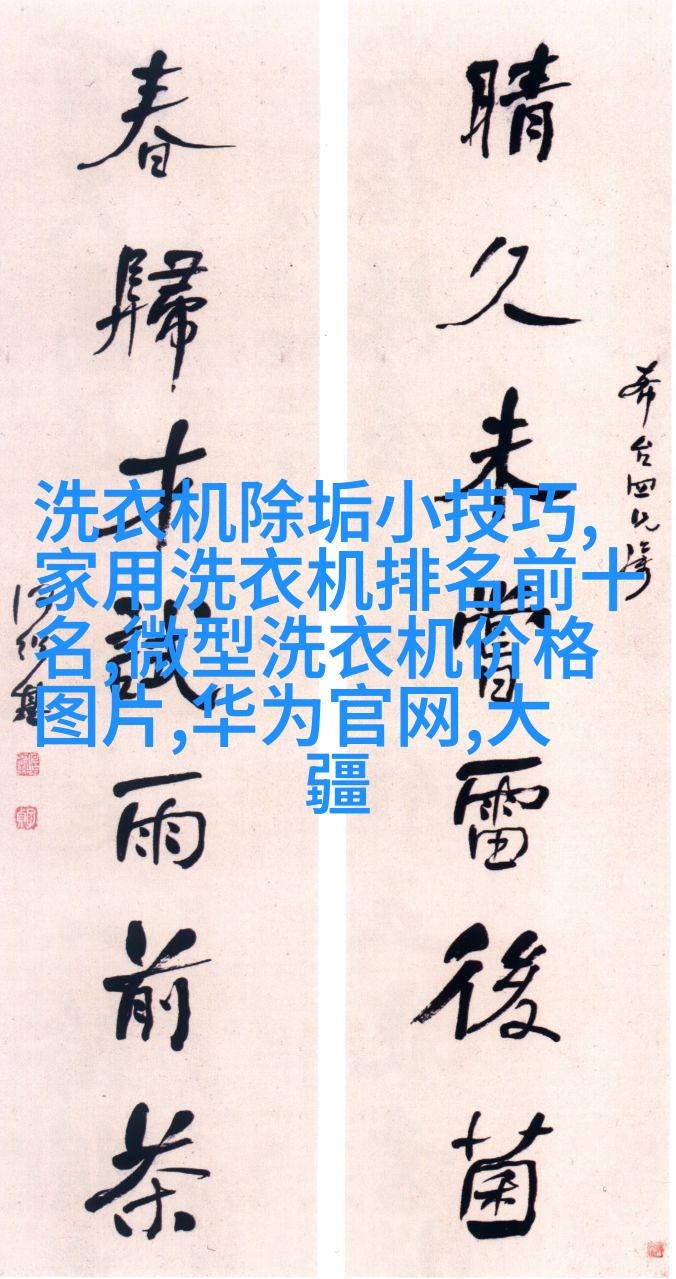 洗衣机除垢小技巧,
家用洗衣机排名前十
名,微型洗衣机价格
图片,华为官网,大
疆
晴久未嘗雷後菌
春歸才試雨前茶
何紹基